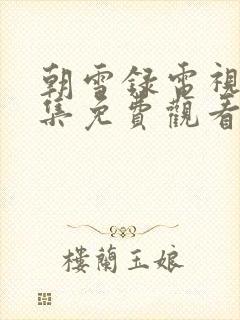 朝雪録電視
集免費觀看
樓蘭玉娘